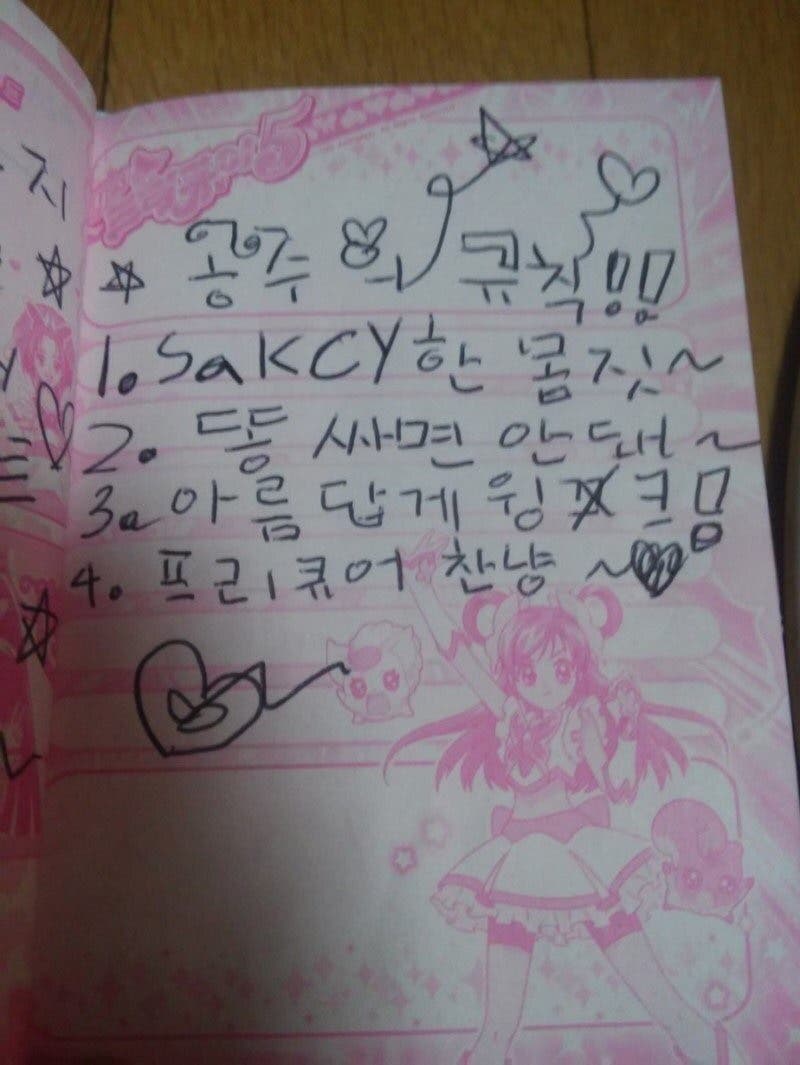 프리큐어5
☆☆ 공주의 규칙!!
1. SaKCY한 몸짓~
2. 똥 싸면 안돼~
3. 아름답게 윙크!
4. 프리큐어 찬냥~♥